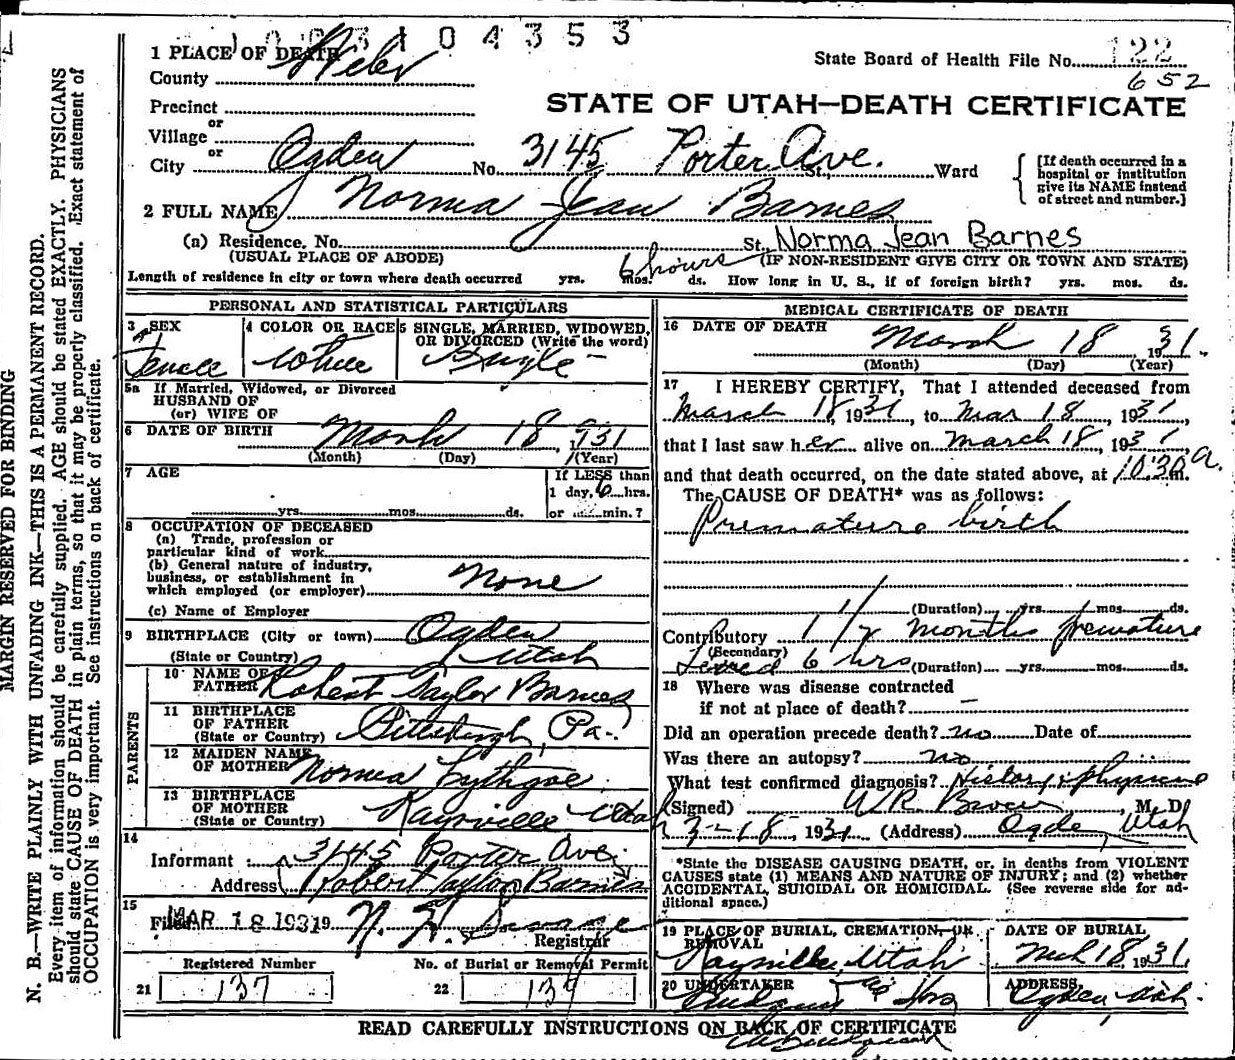 104353
1 PLACE OF DEATH
State Board of Health File No. 122
652
County Weber
STATE OF UTAH—DEATH CERTIFICATE
Precinct
or
Village
or
City Ogden No. 3145 Porter Ave. St., Ward
{ [If death occurred in a hospital or institution give its NAME instead of street and number.]
2 FULL NAME Norma Jean Barnes
(a) Residence, No. St. Norma Jean Barnes
(USUAL PLACE OF ABODE) (IF NON-RESIDENT GIVE CITY OR TOWN AND STATE)
Length of residence in city or town where death occurred yrs. mos. ds. 6 hours How long in U. S., if of foreign birth? yrs. mos. ds.
PERSONAL AND STATISTICAL PARTICULARS
3 SEX Female
4 COLOR OR RACE White
5 SINGLE, MARRIED, WIDOWED, OR DIVORCED (Write the word) Single
5a If Married, Widowed, or Divorced
HUSBAND OF
(or) WIFE OF
6 DATE OF BIRTH March 18 1931
(Month) (Day) (Year)
7 AGE yrs. mos. ds.
If LESS than
1 day, 6 hrs.
or min.?
8 OCCUPATION OF DECEASED
(a) Trade, profession or
particular kind of work
(b) General nature of industry,
business, or establishment in
which employed (or employer) None
(c) Name of Employer
9 BIRTHPLACE (City or town) Ogden
(State or Country) Utah
PARENTS
10 NAME OF FATHER Robert Taylor Barnes
11 BIRTHPLACE OF FATHER (State or Country) Pittsburgh, Pa.
12 MAIDEN NAME OF MOTHER Norma Lythgoe
13 BIRTHPLACE OF MOTHER (State or Country) Kaysville Utah
14
Informant 3145 Porter Ave.
Address Robert Taylor Barnes
15
Filed MAR 18 1931 19
Registrar
Registered Number
21 137
No. of Burial or Removal Permit
22 137
MEDICAL CERTIFICATE OF DEATH
16 DATE OF DEATH March 18 1931.
(Month) (Day) (Year)
17 I HEREBY CERTIFY, That I attended deceased from
March 18, 1931, to Mar 18, 1931,
that I last saw her alive on March 18, 1931,
and that death occurred, on the date stated above, at 10:30 a.m.
The CAUSE OF DEATH* was as follows:
Premature birth
(Duration) yrs. mos. ds.
Contributory 1 1/2 months premature
(Secondary)
Lived 6 hrs (Duration) yrs. mos. ds.
18 Where was disease contracted
if not at place of death? —
Did an operation precede death? no Date of
Was there an autopsy? no
What test confirmed diagnosis? History & physical
(Signed) W R Brown, M. D.
3-18, 1931 (Address) Ogden, Utah
*State the DISEASE CAUSING DEATH, or, in deaths from VIOLENT
CAUSES state (1) MEANS AND NATURE OF INJURY; and (2) whether
ACCIDENTAL, SUICIDAL OR HOMICIDAL. (See reverse side for ad-
ditional space.)
19 PLACE OF BURIAL, CREMATION, OR REMOVAL
Kaysville, Utah
DATE OF BURIAL
Mch 18, 1931
20 UNDERTAKER
ADDRESS
Ogden, Utah.
READ CAREFULLY INSTRUCTIONS ON BACK OF CERTIFICATE
MARGIN RESERVED FOR BINDING
N. B.—WRITE PLAINLY WITH UNFADING INK—THIS IS A PERMANENT RECORD.
Every item of information should be carefully supplied. AGE should be stated EXACTLY. PHYSICIANS
should state CAUSE OF DEATH in plain terms, so that it may be properly classified. Exact statement of
OCCUPATION is very important. See instructions on back of certificate.